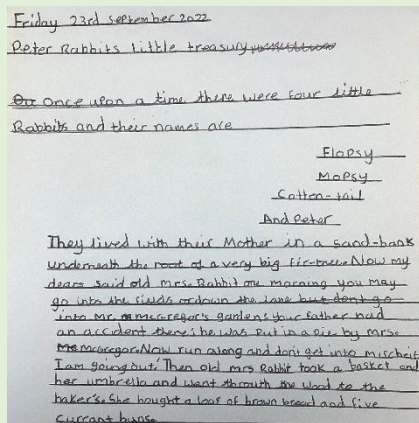 Friday 23rd September 2022
Peter Rabbits little treasury
Once upon a time there were four little
Rabbits and their names are
Flopsy
Mopsy
Cotton-tail
And Peter
They lived with their Mother in a sand-bank
underneath the root of a very big fir-tree. Now my
dears said old mrs. Rabbit one morning you may
go into the fields or down the lane but dont go
into Mr. mcGregor's garden: your father had
an accident there; he was put in a pie by mrs.
mcGregor. Now run along and don't get into mischeif
I am going out. Then old mrs Rabbit took a basket and
her umbrella and went through the wood to the
baker's. She bought a loaf of brown bread and five
currant buns.